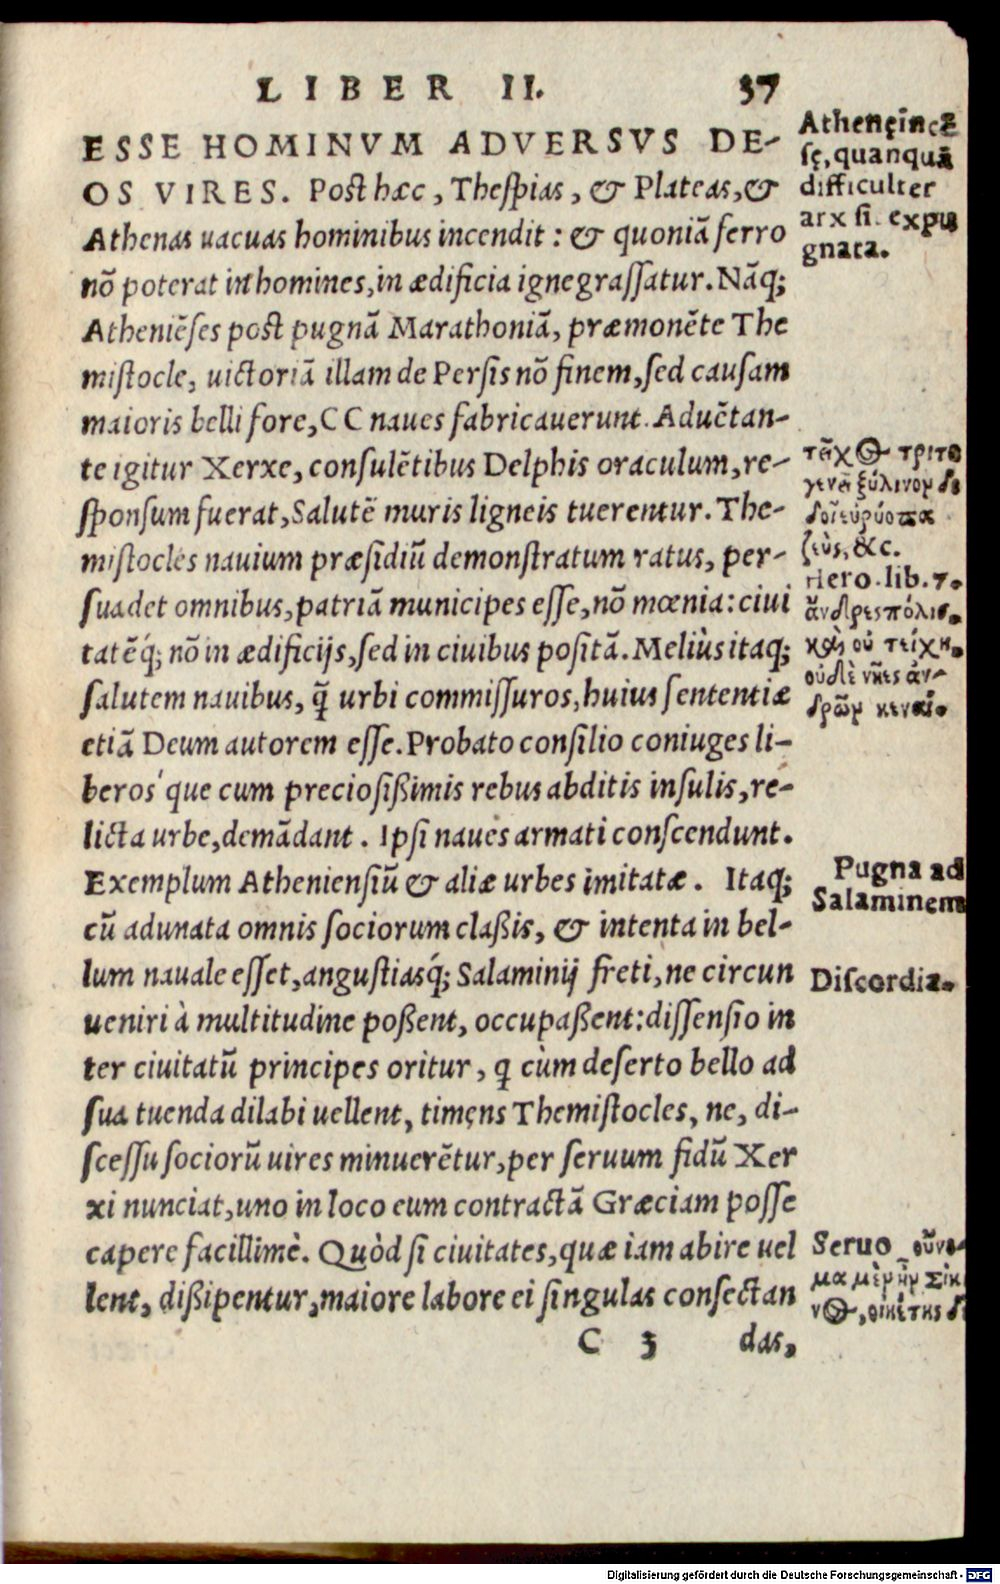 LIBER II. 37
ESSE HOMINVM ADVERSVS DE-
OS VIRES. Post hæc, Thespias, & Plateas, &
Athenas uacuas hominibus incendit: & quoniã ferro
nõ poterat in homines, in ædificia igne grassatur. Nãq;
Atheniẽses post pugnã Marathoniã, præmonẽte The
mistocle, uictoriã illam de Persis nõ finem, sed causam
maioris belli fore, CC naues fabricauerunt. Aduẽtan-
te igitur Xerxe, consulẽtibus Delphis oraculum, re-
sponsum fuerat, Salutẽ muris ligneis tuerentur. The-
mistocles nauium præsidiũ demonstratum ratus, per-
suadet omnibus, patriã municipes esse, nõ mœnia: ciui
tatẽq́; nõ in ædificijs, sed in ciuibus positã. Meliùs itaq;
salutem nauibus, q̃ urbi commissuros, huius sententiæ
etiã Deum autorem esse. Probato consilio coniuges li-
beros´que cum preciosißimis rebus abditis insulis, re-
licta urbe, demãdant. Ipsi naues armati conscendunt.
Exemplum Atheniensiũ & aliæ urbes imitatæ. Itaq;
cũ adunata omnis sociorum claßis, & intenta in bel-
lum nauale esset, angustiasq́; Salaminij freti, ne circun
ueniri à multitudine poßent, occupaßent: dissensio in
ter ciuitatũ principes oritur, q̃ cùm deserto bello ad
sua tuenda dilabi uellent, timẹns Themistocles, ne, di-
scessu sociorũ uires minuerẽtur, per seruum fidũ Xer
xi nunciat, uno in loco eum contractã Græciam posse
capere facillimè. Quòd si ciuitates, quæ iam abire uel
lent, dißipentur, maiore labore ei singulas consectan
C 3 das,
Athenęĩncẽ
sę, quanquã
difficulter
arx sit expug
gnata.
τᾶχος τριτο
γενᾶ ξύλινον δι
δοῖ εὐρύοπα
ζεὺς, &c.
Hero. lib. 7.
ἄνδρες πόλις,
καὶ οὐ τείχη,
οὐδὲ νῆες ἀν-
δρῶν κεναί.
Pugna ad
Salaminem
Discordia.
Seruo οὔνο-
μα μὲν ἦν Σίκι
νος, οἰκέτης δ
Digitalisierung gefördert durch die Deutsche Forschungsgemeinschaft - DFG